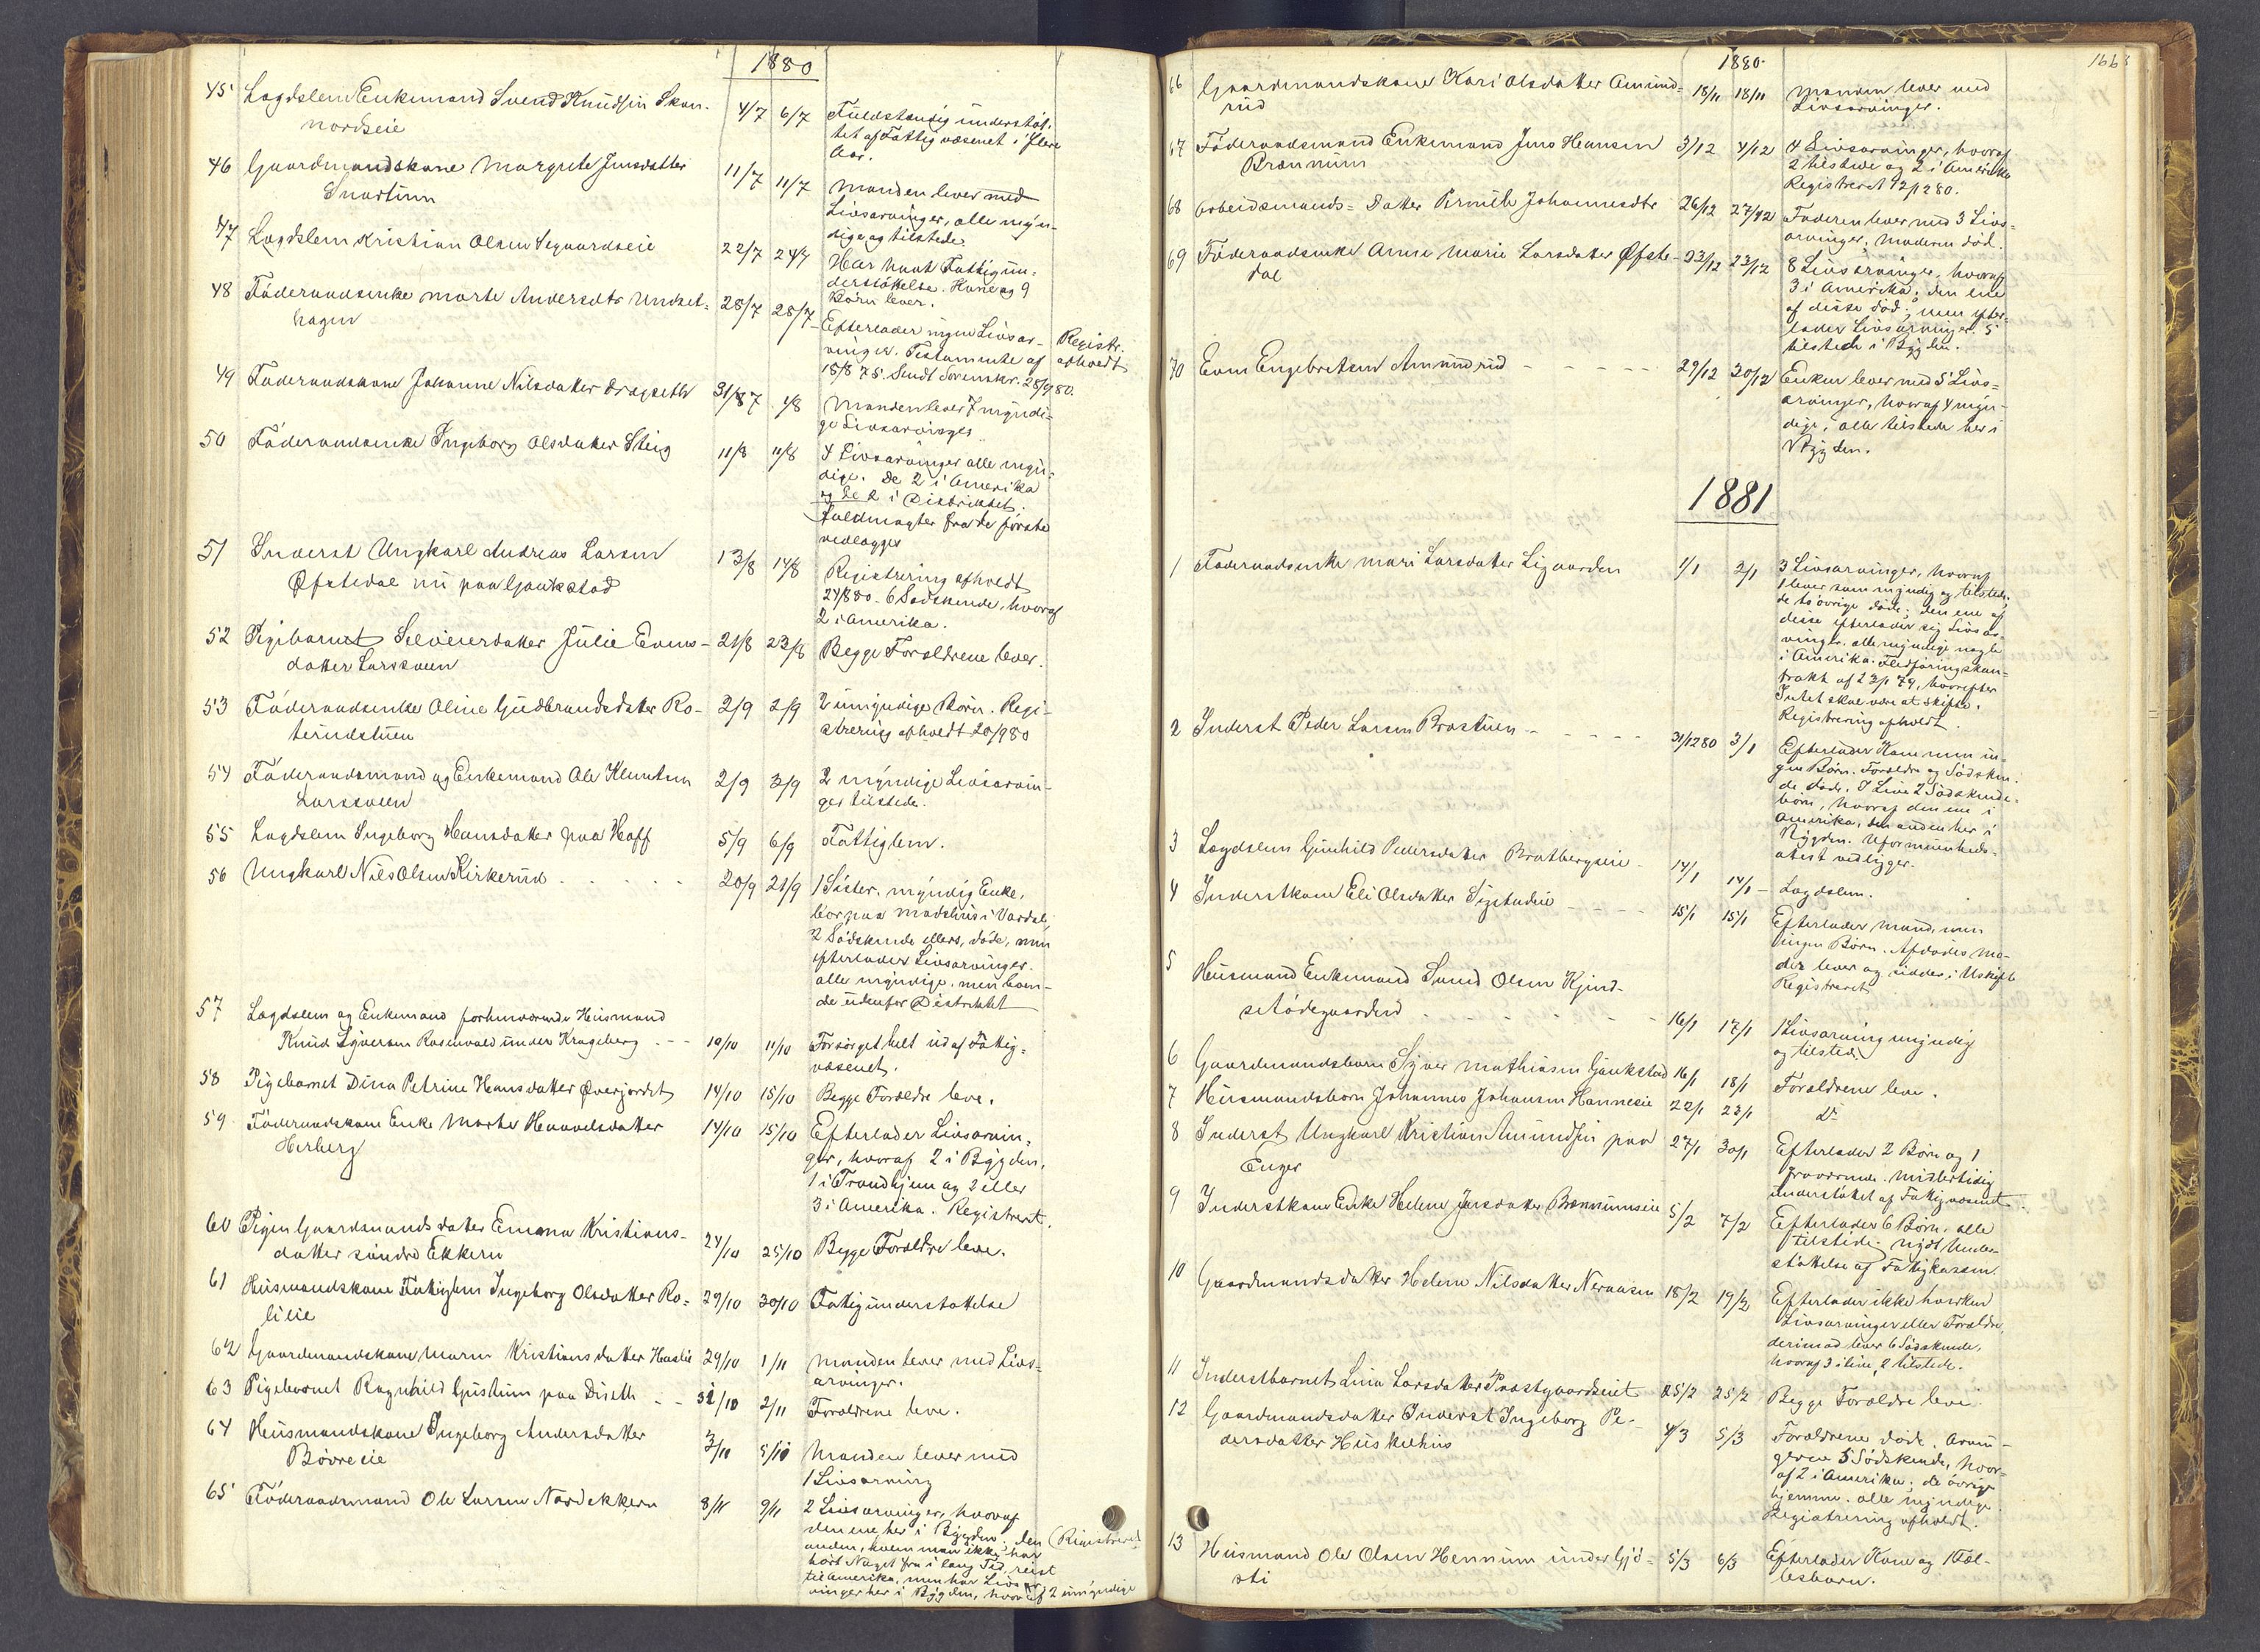 1880
45 Lægdslem Enkemand Svend Knudsen Skon-
nordseie 4/7 6/7 Fuldstændig understøt-
tet af Fattigvæsenet i flere
Aar.
46 Gaardmandskone Margrete Jensdatter
Snortum 11/7 11/7 Manden lever med
Livsarvinger, alle myn-
dige og tilstede.
47 Lægdslem Kristian Olsen Segaardseie 22/7 24/7 Har havt Fattigun-
derstøttelse. Kone og 9
Børn lever.
48 Føderaadsenke Marte Andersdtr Undset-
hagen 28/7 28/7 Efterlader ingen Livsar-
vinger. Testamente af
15/8 75. Sendt Sorenskr. 28/9 80. Registr. afholdt
49 Føderaadskone Johanne Nilsdatter Dragseth 31/7 1/8 Manden lever 7 myndi-
ge Livsarvinger
50 Føderaadsenke Ingeborg Olsdatter Steig 11/8 11/8 4 Livsarvinger alle myn-
dige. De 2 i Amerika
og de 2 i Distriktet.
Fuldmagter fra de første
vedlægges
51 Inderst Ungkarl Andreas Larsen
Øfstedal nu paa Gaukstad 13/8 14/8 Registrering afholdt
24/8 80. 6 Sødskende, hvoraf
2 i Amerika.
52 Pigebarnet Selveierdatter Julie Evens-
datter Larssveen 21/8 23/8 Begge Forældrene lever.
53 Føderaadsenke Oline Gudbrandsdatter Ro-
terudstuen 2/9 2/9 2 umyndige Børn. Regi-
strering afholdt 20/9 80
54 Føderaadsmand og Enkemand Ole Klemetsen
Larssveen 2/9 3/9 2 myndige Livsarvin-
ger tilstede.
55 Lægdslem Ingeborg Hansdatter paa Hoff 5/9 6/9 Fattiglem.
56 Ungkarl Nils Olsen Kirkerud 20/9 21/9 1 Søster, myndig Enke,
bor paa Madshus i Vardal,
2 Sødskende ellers, døde, men
efterlader Livsarvinger.
alle myndige, men boen-
de udenfor Distriktet
57 Lægdslem og Enkemand forhenværende Husmand
Knud Syversen Rosenvald under Krageberg 10/10 11/10 Forsørget helt ud af Fattig-
væsenet.
58 Pigebarnet Dina Petrine Hansdatter Øverjordet 14/10 15/10 Begge Forældre leve.
59 Føderaadskone Enke Marte Haavelsdatter
Herberg 14/10 15/10 Efterlader Livsarvin-
ger, hvoraf 2 i Bygden,
1 i Trondhjem og 2 eller
3 i Amerika. Registreret.
60 Pigen Gaardmandsdatter Emma Kristians-
datter søndre Ekkern 24/10 25/10 Begge Forældre leve.
61 Husmandskone Fattiglem Ingeborg Olsdatter Ro-
lieie 29/10 30/10 Fattigunderstøttelse
62 Gaardmandskone Maren Kristiansdatter Haslie 29/10 1/11 Manden lever med Livs-
arvinger.
63 Pigebarnet Ragnhild Gustum paa Diseth 31/10 2/11 Forældrene leve.
64 Husmandskone Ingeborg Andersdatter
Bøvreeie 3/10 5/10 Manden lever med
1 Livsarving
65 Føderaadsmand Ole Larsen Nordekkern 8/11 9/11 2 Livsarvinger, hvoraf
den ene her i Bygden; den (Registreret
anden, hvem man ikke har
hørt Noget fra i lang Tid, reist
til Amerika, men har Livsar-
vinger her i Bygden, hvoraf 2 umyndige
1880. 166
66 Gaardmandskone Kari Olsdatter Amund-
rud 18/11 18/11 Manden lever med
Livsarvinger.
67 Føderaadsmand Enkemand Jens Hansen
Brænnum 3/12 4/12 4 Livsarvinger, hvoraf
2 tilstede og 2 i Amerika
Registreret 12/12 80.
68 Arbeidsmands-Datter Pernille Johannesdtr 26/12 27/12 Faderen lever med 3 Livs-
arvinger. Moderen død.
69 Føderaadsenke Anne Marie Larsdatter Øfste-
dal 23/12 23/12 8 Livsarvinger, hvoraf
3 i Amerika; den ene
af disse død, men efter-
lader Livsarvinger, 5
tilstede i Bygden.
70 Even Engebretsen Amundrud 29/12 30/12 Enken lever med 5 Livs-
arvinger, hvoraf 4 myn-
dige; alle tilstede her i
Bygden.
1881
1 Føderaadsenke Mari Larsdatter Ligaarden 1/1 2/1 3 Livsarvinger, hvoraf
1 lever som myndig og tilstede.
de to øvrige døde; den ene af
disse efterlader sig Livsar-
vinger. alle myndige nogle
i Amerika. Fledføringskon-
trakt af 23/1 74, hvorefter
Intet skal være at skifte.
Registrering afholdt.
2 Inderst Peder Larsen Brostuen 31/12 80 3/1 Efterlader Kone men in-
gen Børn. Forældre og Sødsken-
de døde. I Live 2 Sødskende-
børn, hvoraf den ene i
Amerika, den anden her i
Bygden. Uformuenheds-
atest vedligger.
3 Lægdslem Gunhild Pedersdatter Bratbergseie 14/1 14/1 Lægdslem.
4 Inderstkone Eli Olsdatter Sigstadeie 15/1 15/1 Efterlader Mand, men
ingen Børn. Afdødes Mo-
der lever og sidder i Uskifte
Registreret
5 Husmand Enkemand Svend Olsen Kjind-
setødegaarden 16/1 17/1 1 Livsarving myndig
og tilstede
6 Gaardmandsbarn Syver Mathiasen Gaukstad 16/1 18/1 Forældrene leve.
7 Husmandsbarn Johannes Johansen Hanneseie 22/1 23/1 do
8 Inderst Ungkarl Kristian Amundsen paa
Enger 27/1 30/1 Efterlader 2 Børn og 1
fraværende. Midlertidig
understøttet af Fattigvæsenet.
9 Inderstkone Enke Helene Jensdatter Brænnumseie 5/2 7/2 Efterlader 6 Børn, alle
tilstede. Nydt Under-
støttelse af Fattigkassen.
10 Gaardmandsdatter Helene Nilsdatter Neraasen 18/2 19/2 Efterlader ikke hverken
Livsarvinger eller Forældre,
derimod lever 6 Sødskende,
hvoraf 3 i live, 2 tilstede.
11 Inderstbarnet Lina Larsdatter Præstgaardseiet 25/2 25/2 Begge Forældre leve
12 Gaardmandsdatter Inderst Ingeborg Pe-
dersdatter Huskelhus 4/3 5/3 Forældrene døde. Arvin-
gerne 5 Sødskende, hvor-
af 2 i Amerika; de øvrige
hjemme. alle myndige.
Registrering afholdt.
13 Husmand Ole Olsen Hennum under Gjø-
sti 5/3 6/3 Efterlader Kone og 1 Fæl-
lesbarn.